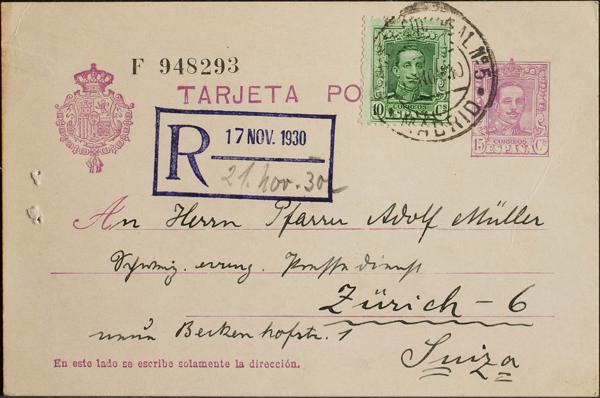 F 948293
TARJETA PO
R 17 NOV. 1930
21. nov. 30
10 CORREOS Cs
Nº 5
MADRID
CORREOS
15 ESPAÑA Cs
An Herrn Pfarrer Adolf Müller
Schweiz. evang. Pressedienst
Zürich - 6
Beckenhofstr. 1
Suiza
En este lado se escribe solamente la dirección.